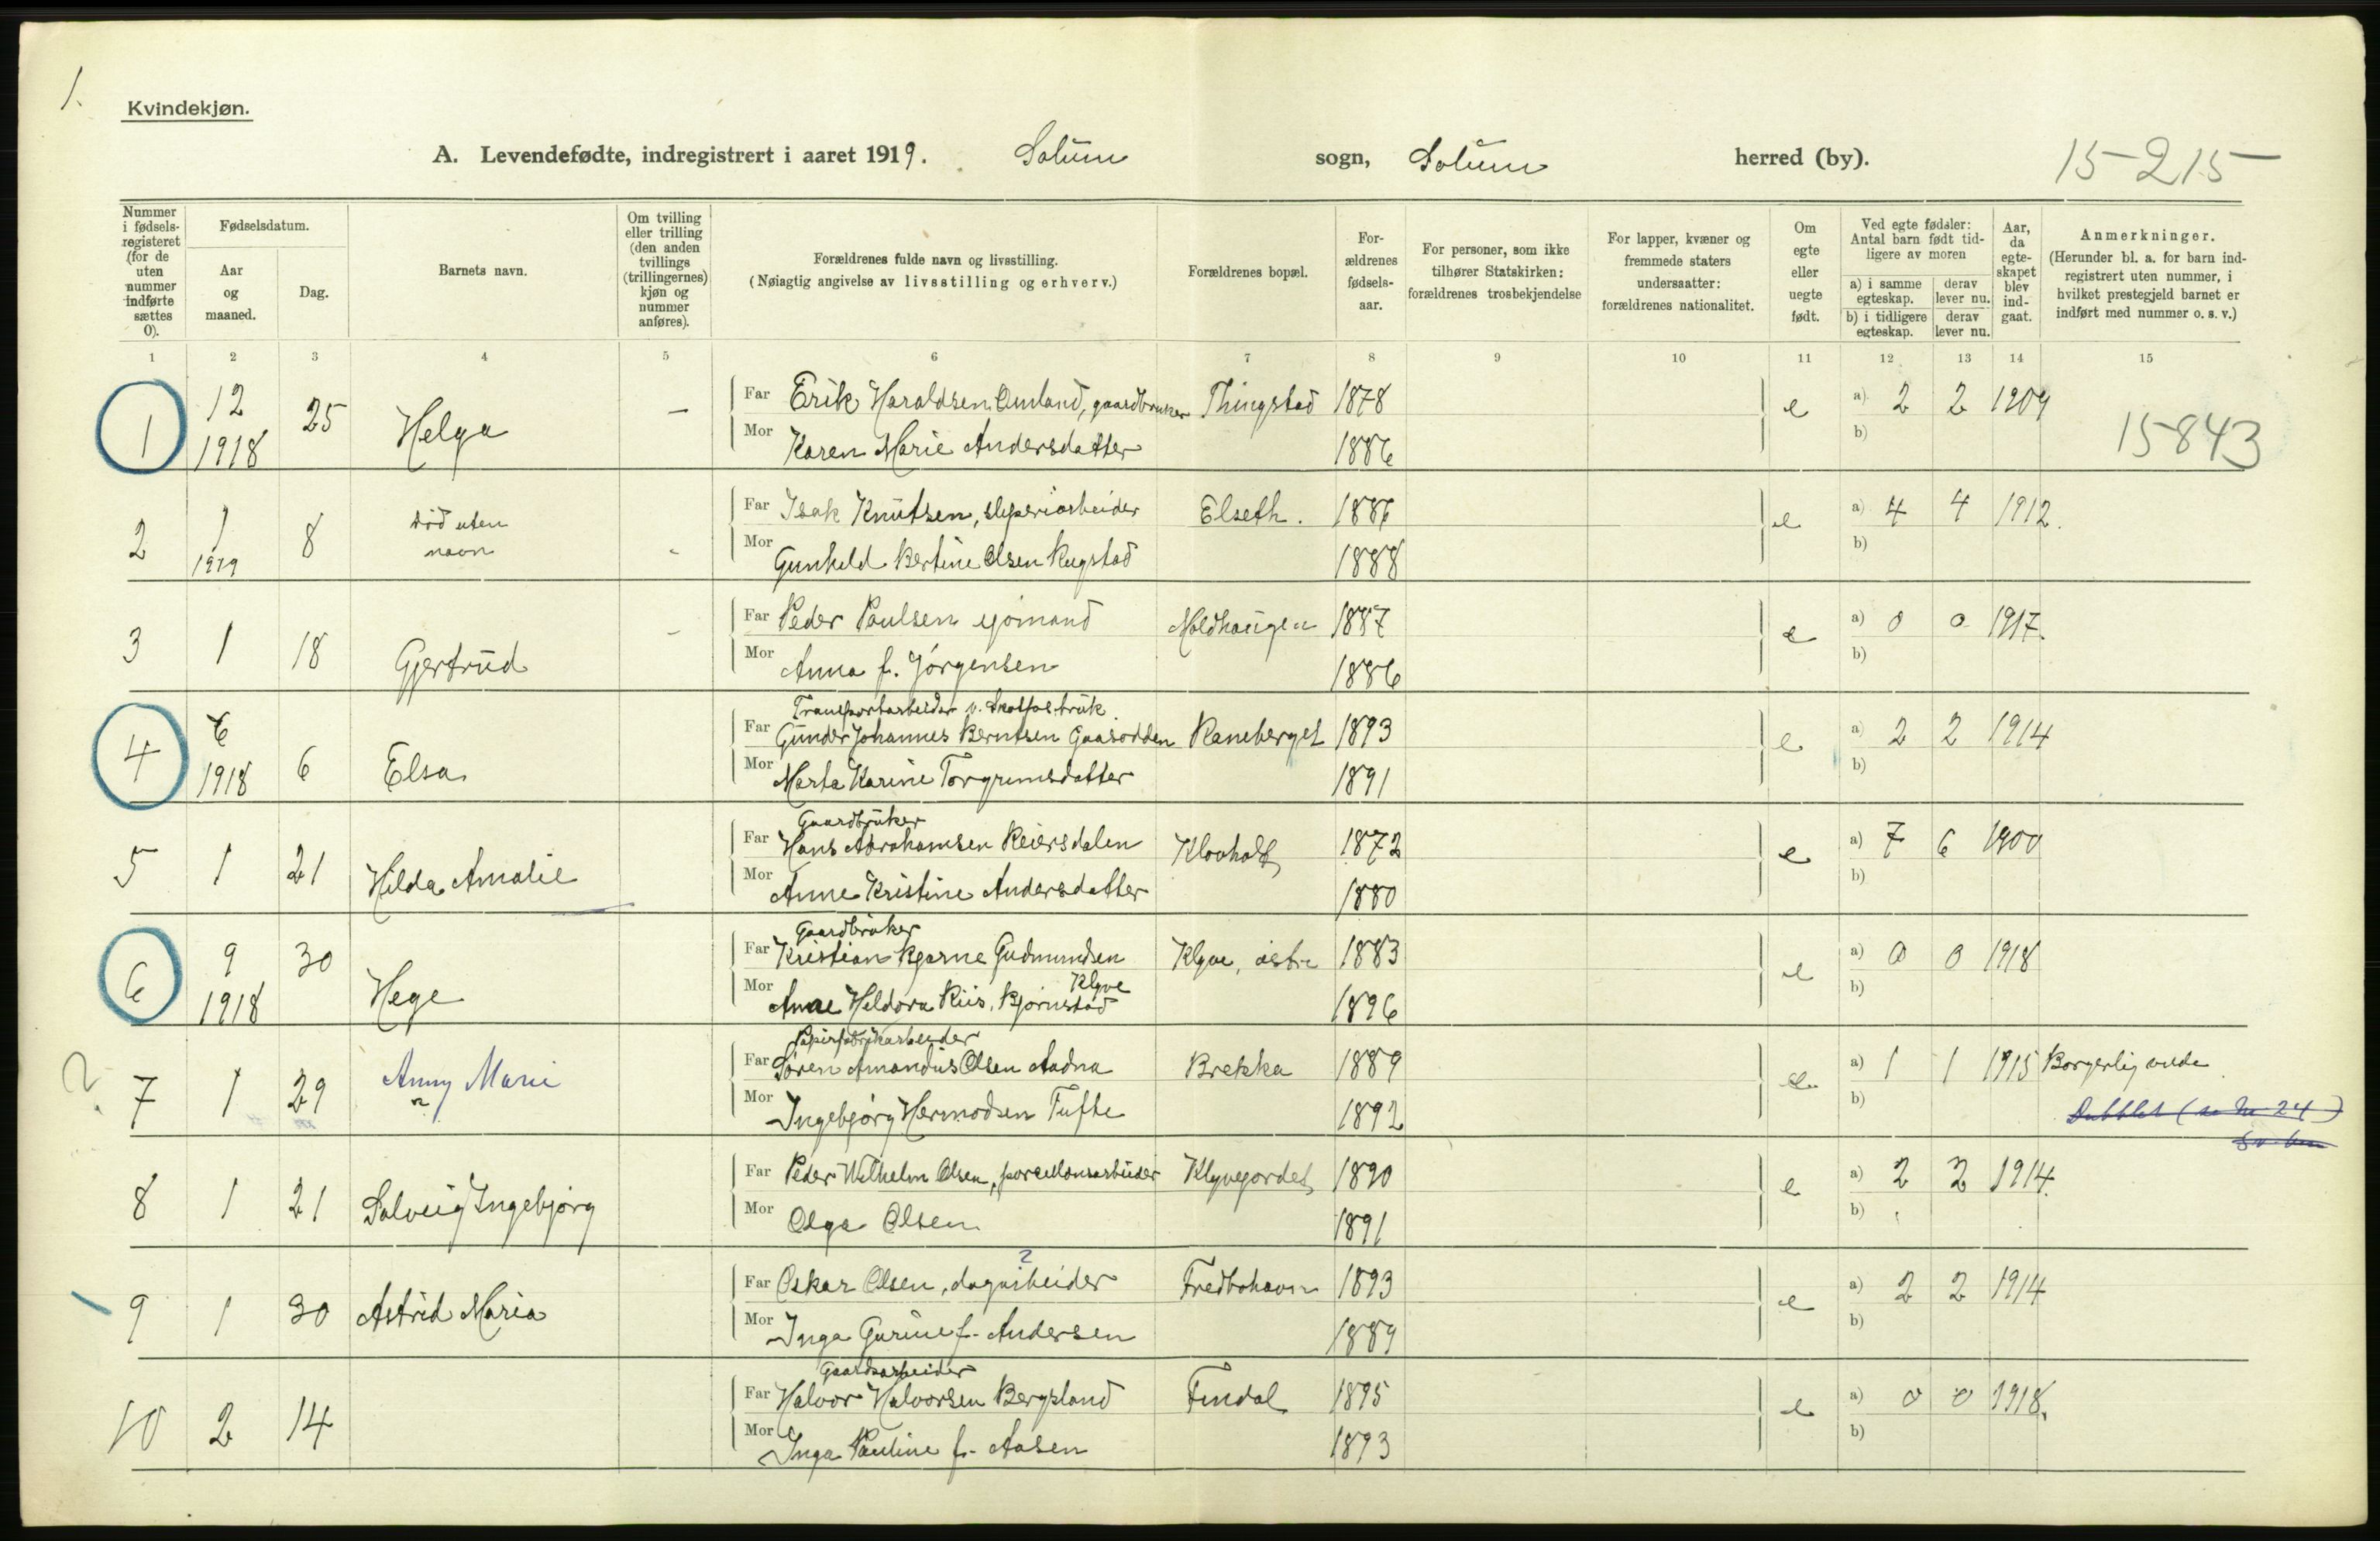 1.
Kvindekjøn.
A. Levendefødte, indregistrert i aaret 1919. Solum sogn, Solum herred (by). 15-215
Nummer i fødsels-registeret (for de uten nummer indførte sættes 0).
Fødselsdatum.
Aar og maaned.
Dag.
Barnets navn.
Om tvilling eller trilling (den anden tvillings (trillingernes) kjøn og nummer anføres).
Forældrenes fulde navn og livsstilling.
(Nøiagtig angivelse av livsstilling og erhverv.)
Forældrenes bopæl.
For-ældrenes fødsels-aar.
For personer, som ikke tilhører Statskirken: forældrenes trosbekjendelse
For lapper, kvæner og fremmede staters undersaatter: forældrenes nationalitet.
Om egte eller uegte født.
Ved egte fødsler: Antal barn født tid-ligere av moren
a) i samme egteskap. derav lever nu.
b) i tidligere egteskap. derav lever nu.
Aar, da egte-skapet blev ind-gaat.
Anmerkninger.
(Herunder bl. a. for barn ind-registrert uten nummer, i hvilket prestegjeld barnet er indført med nummer o. s. v.)
1 2 3 4 5 6 7 8 9 10 11 12 13 14 15
1 12 1918 25 Helga - Far Erik Haraldsen Omland, gaardbruker Thingstad 1878 e a) 2 2 1909
Mor Karen Marie Andersdatter 1886 b) 15843
2 1 1919 8 død uten navn - Far Isak Knutsen, sliperiarbeider Elseth. 1886 e a) 4 4 1912.
Mor Gunhild Bertine Olsen Rugstad 1888 b)
3 1 18 Gjertrud - Far Peder Paulsen sjømand Moldhaugen 1887 e a) 0 0 1917.
Mor Anna f. Jørgensen 1886 b)
Transportarbeider v. Skotfos bruk
4 6 1918 6 Elsa Far Gunder Johannes Berntsen Gaasodden Raneberget 1893 e a) 2 2 1914
Mor Marta Karine Torgrimsdatter 1891 b)
Gaardbruker
5 1 21 Hilda Amalie Far Hans Abrahamsen Reiersdalen Klovholt 1872 e a) 7 6 1900
Mor Anne Kristine Andersdatter 1880 b)
Gaardbruker
6 9 1918 30 Hege Far Kristian Bjarne Gudmundsen Klyve Klyve, østre 1883 e a) 0 0 1918
Mor Anne Heldora Riis, Bjørnstad 1896 b)
Papirfabrikarbeider
? 7 1 29 Anny Marie Far Søren Amandus Olsen Aadna Brekka 1889 e a) 1 1 1915 Borgerlig viede
Mor Ingebjørg Hermodsen Tufte 1892 b) Dubblet (se nr 24)
8 1 21 Solveig Ingebjørg Far Peder Wilhelm Olsen, porcellænsarbeider Klyvejordet 1890 e a) 2 2 1914.
Mor Olga Olsen 1891 b)
?
9 1 30 Astrid Maria Far Oskar Olsen, dagarbeider Fredbohavn 1893 e a) 2 2 1914
Mor Inga Gurine f. Andersen 1889 b)
Gaardsarbeider
10 2 14 Far Halvor Halvorsen Bergsland Findal 1895 e a) 0 0 1918.
Mor Inga Pauline f. Aasen 1893 b)